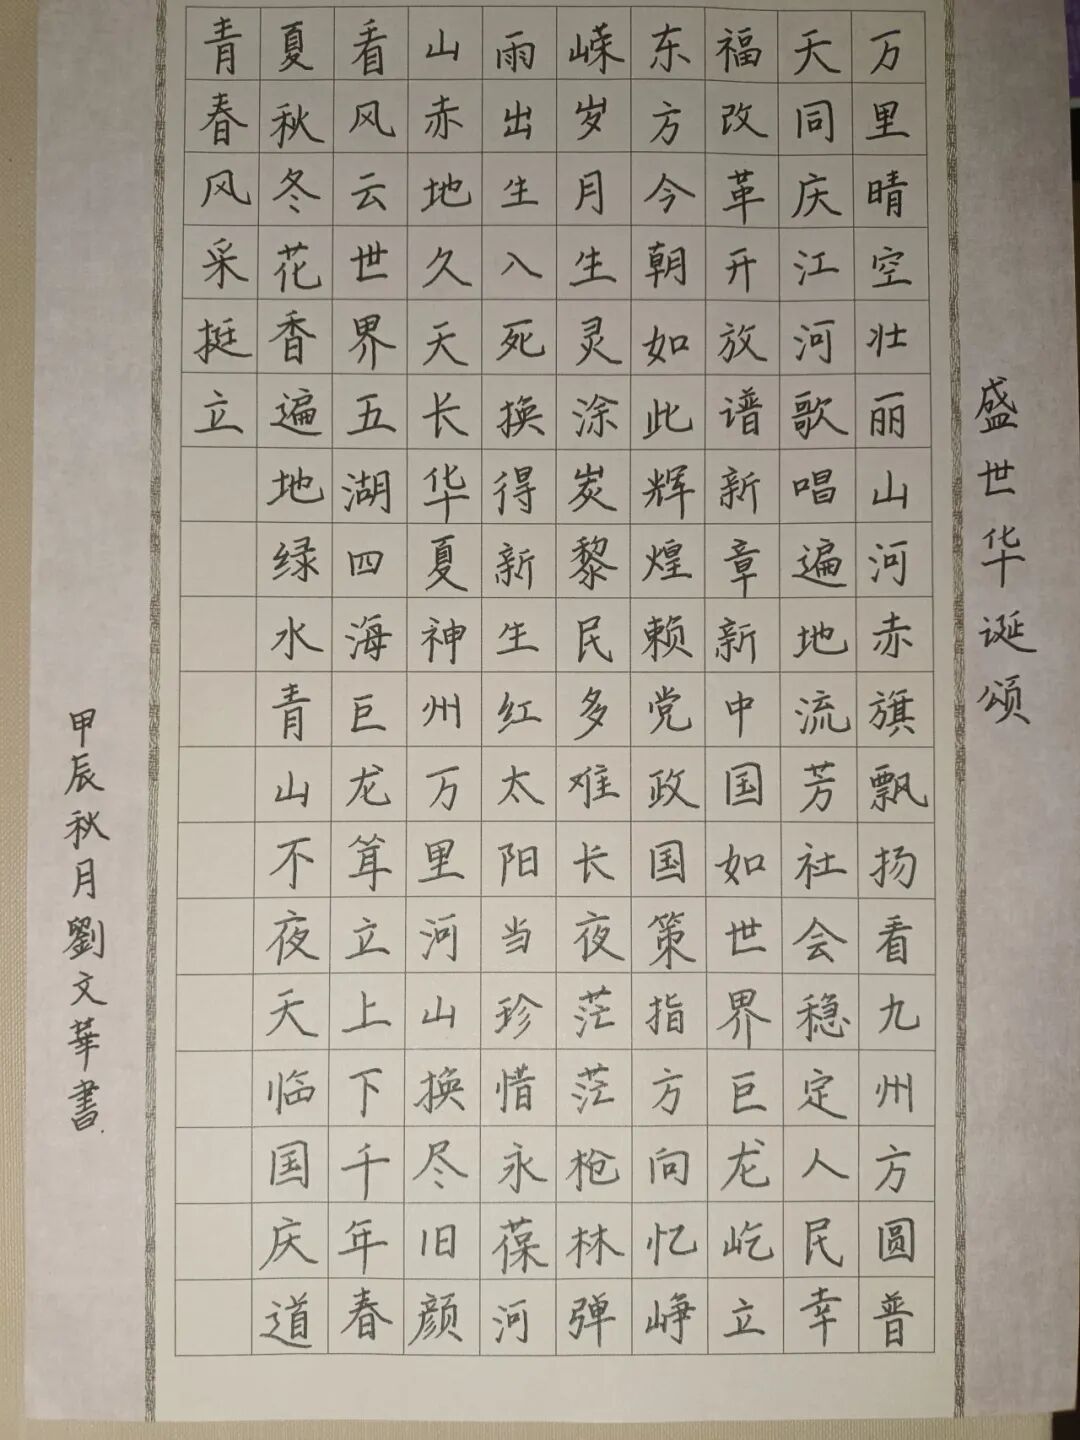 盛世华诞颂
万里晴空壮丽山河赤旗飘扬看九州方圆普
天同庆江河歌唱遍地流芳社会稳定人民幸
福改革开放谱新章新中国如世界巨龙屹立
东方今朝如此辉煌赖党政国策指方向忆峥
嵘岁月生灵涂炭黎民多难长夜茫茫枪林弹
雨出生入死换得新生红太阳当珍惜永葆河
山赤地久天长华夏神州万里河山换尽旧颜
看风云世界五湖四海巨龙耸立上下千年春
夏秋冬花香遍地绿水青山不夜天临国庆道
青春风采挺立
甲辰秋月劉文華書